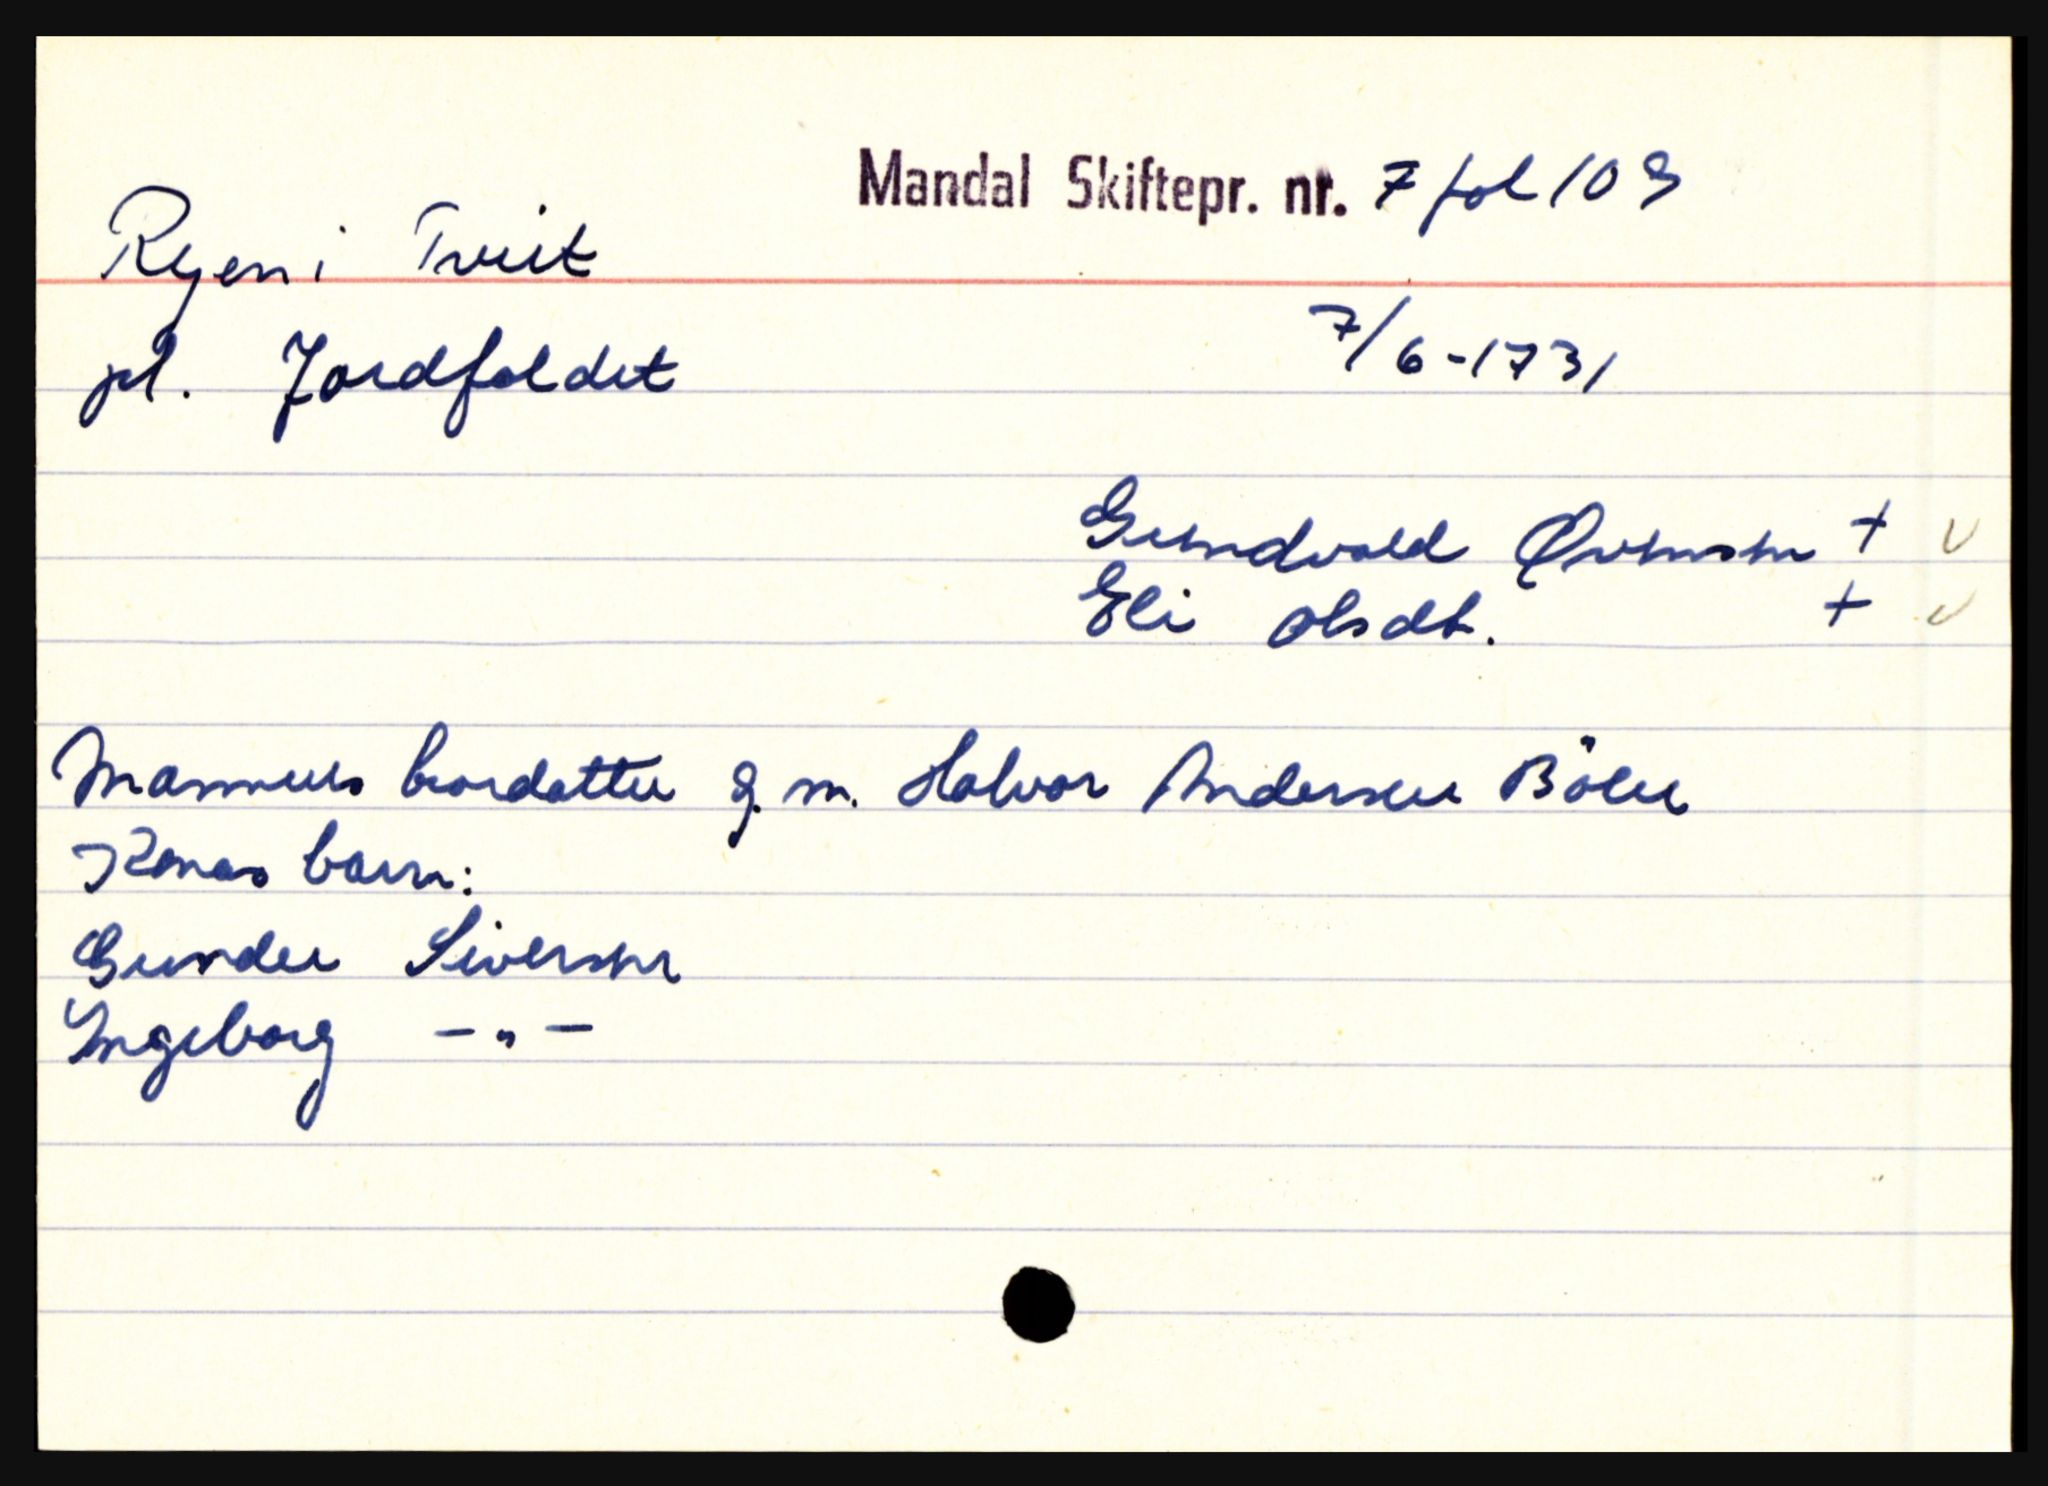 Mandal Skiftepr. nr. 7 fol 109
Ryen i Tveit
7/6-1731
pl. Jordfaldet
Gundvald Øvensen + v
Eli Olsdt. + v
Mannens brordatter g. m. Halvor Andersen Bölen
Konas barn:
Gunder Siversen
Ingeborg -"-